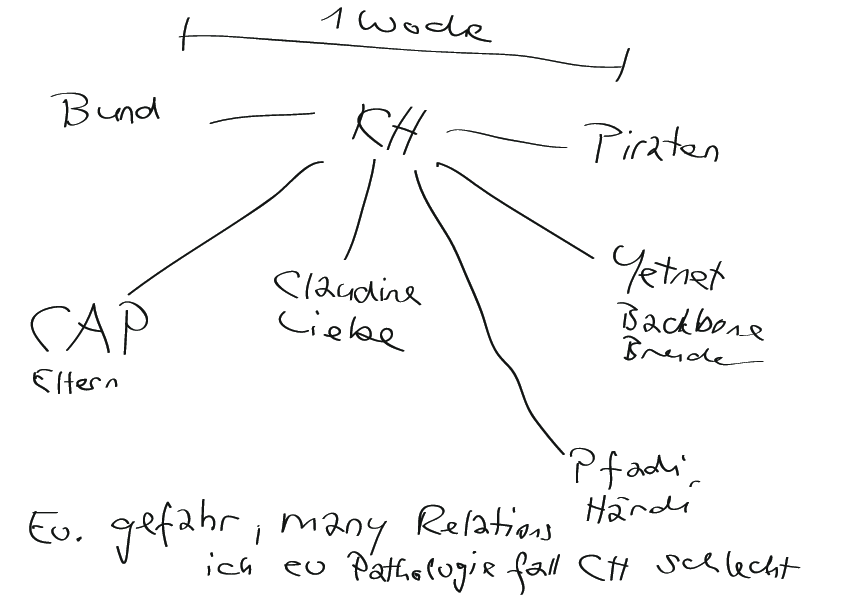 1 Woche
Bund
KH
Piraten
CAP
Eltern
Claudine
Liebe
Yetnet
Backbone
Pfadi
Händi
Ev. gefahr, many Relations
ich ev Pathologie fall CH schlecht